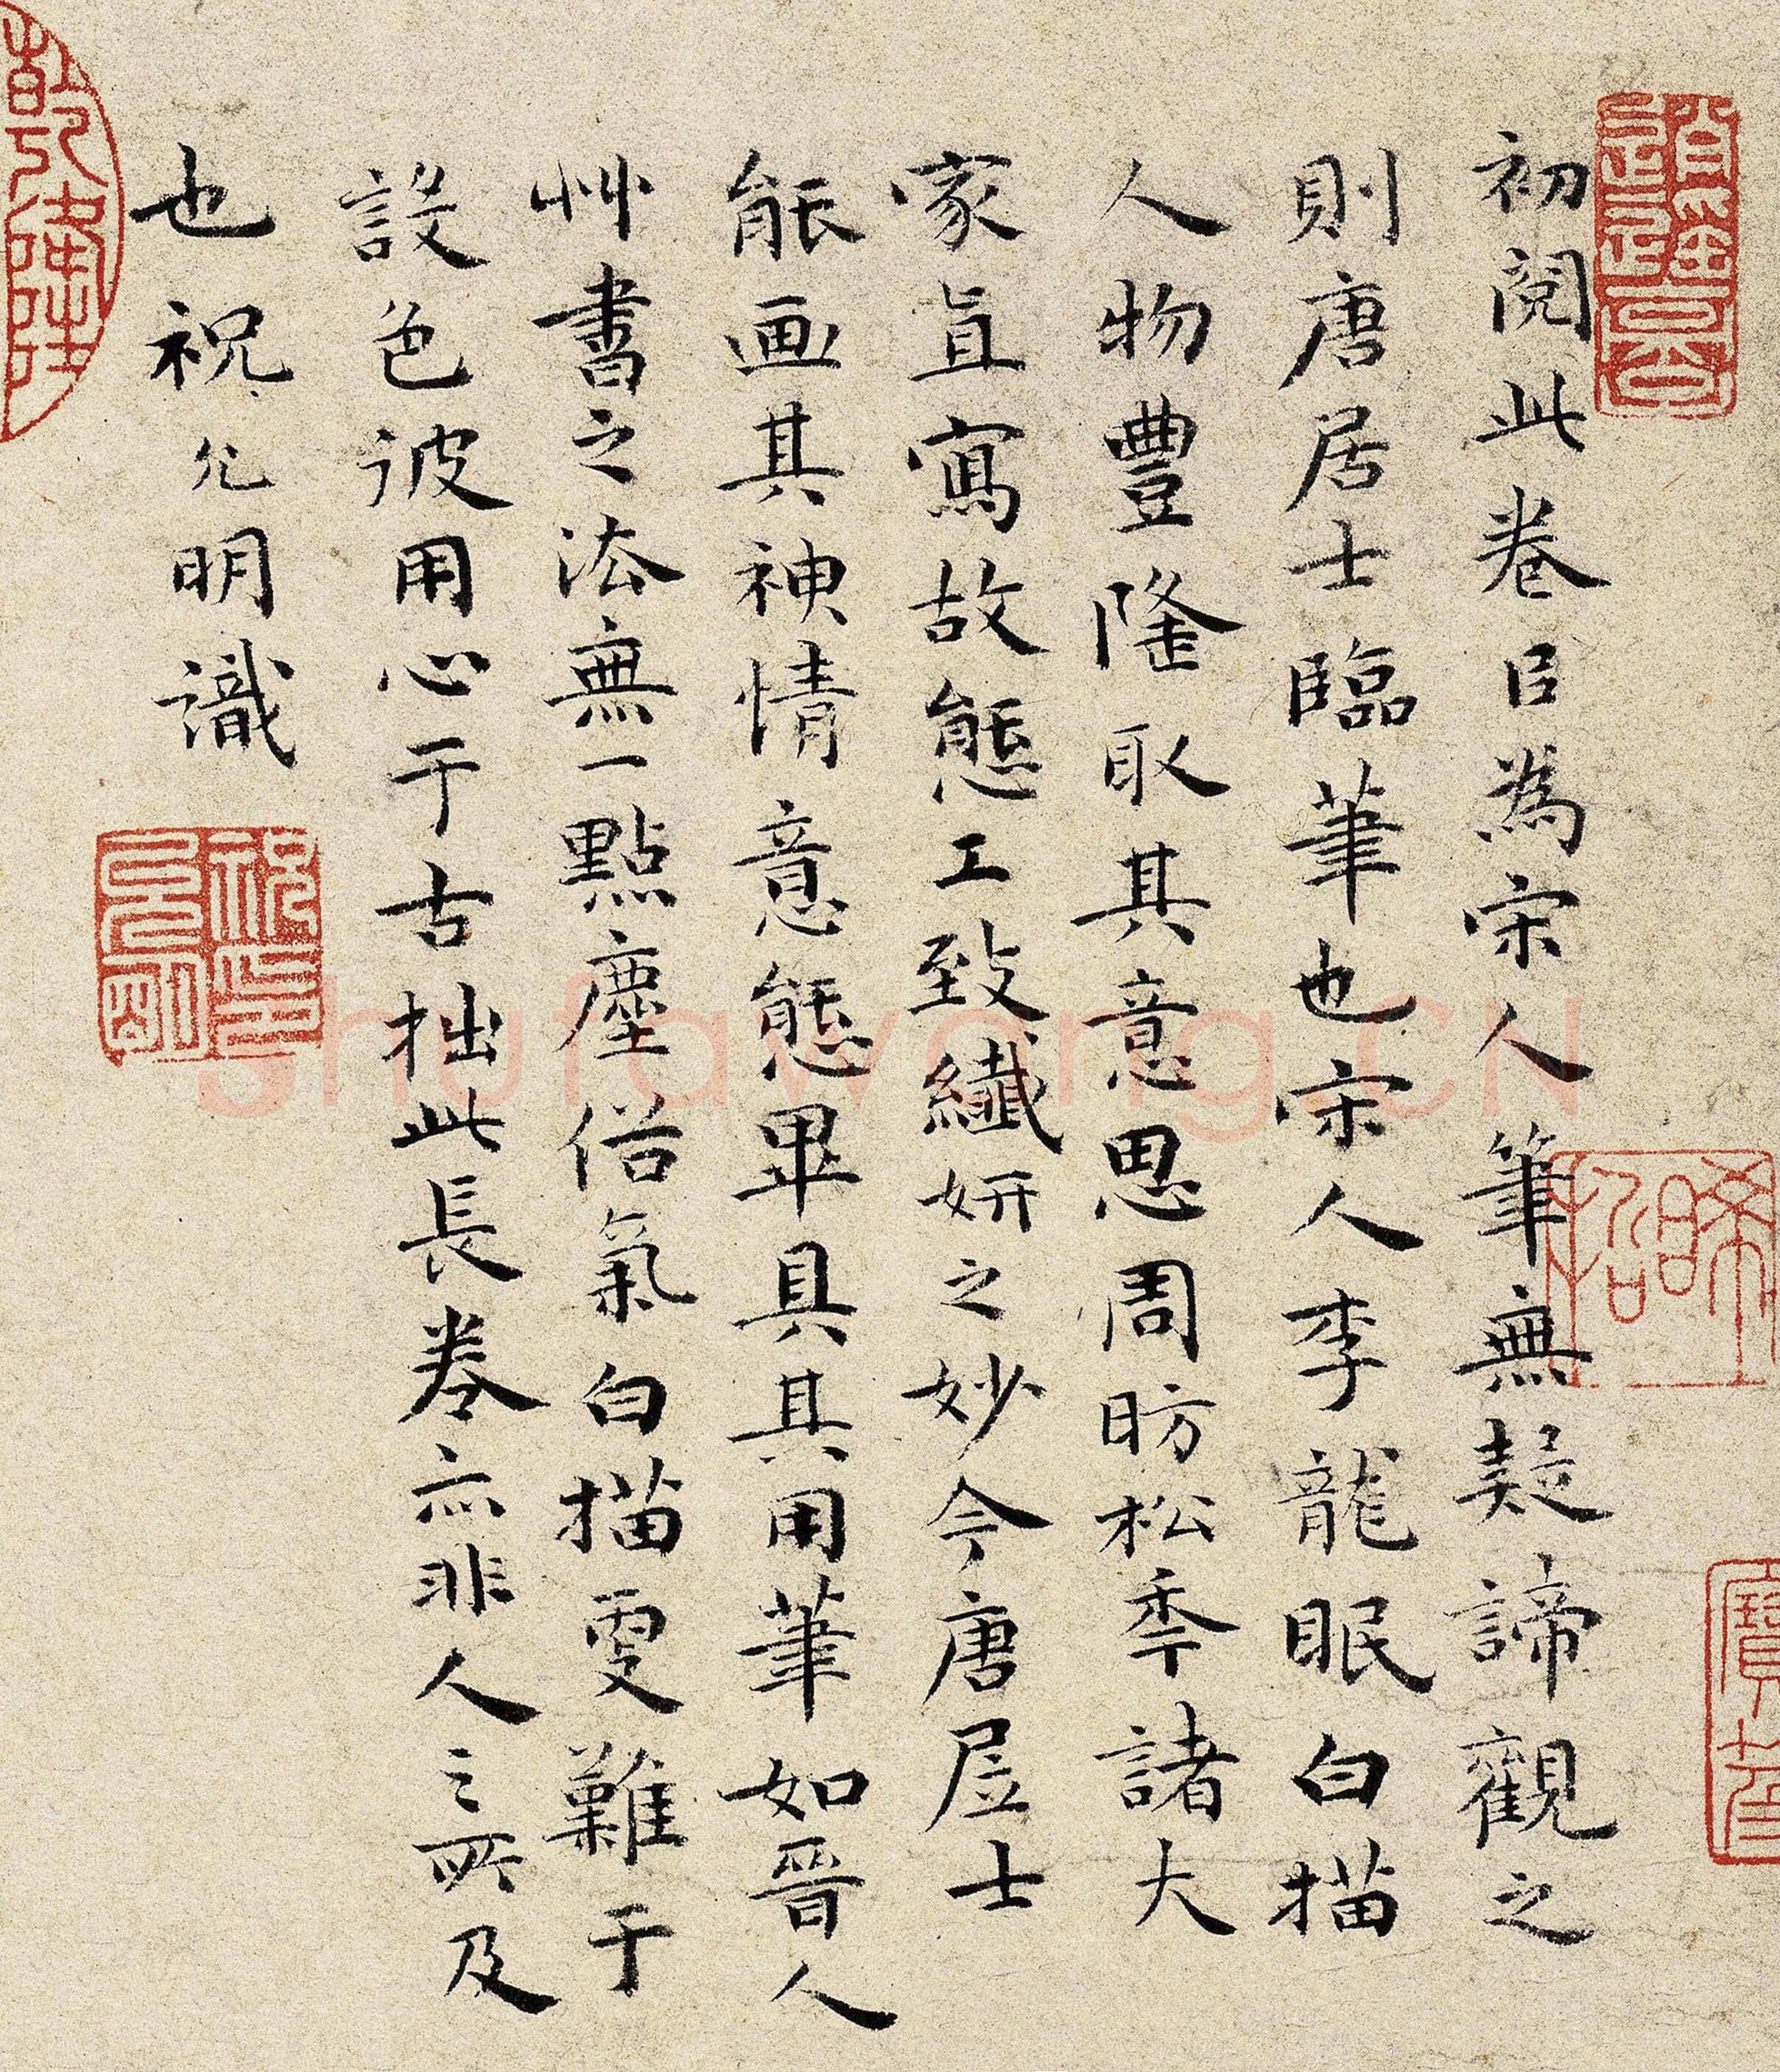 初閱此卷㠯為宋人筆無疑諦觀之
則唐居士臨筆也宋人李龍眠白描
人物豐隆取其意思周昉松季諸大
家真寫故態工致纖妍之妙今唐居士
能画其神情意態畢具其用筆如晉人
艸書之法無一點塵俗氣白描更難于
設色彼用心于古拙此長卷亦非人之所及
也祝允明識
shufawang.CN